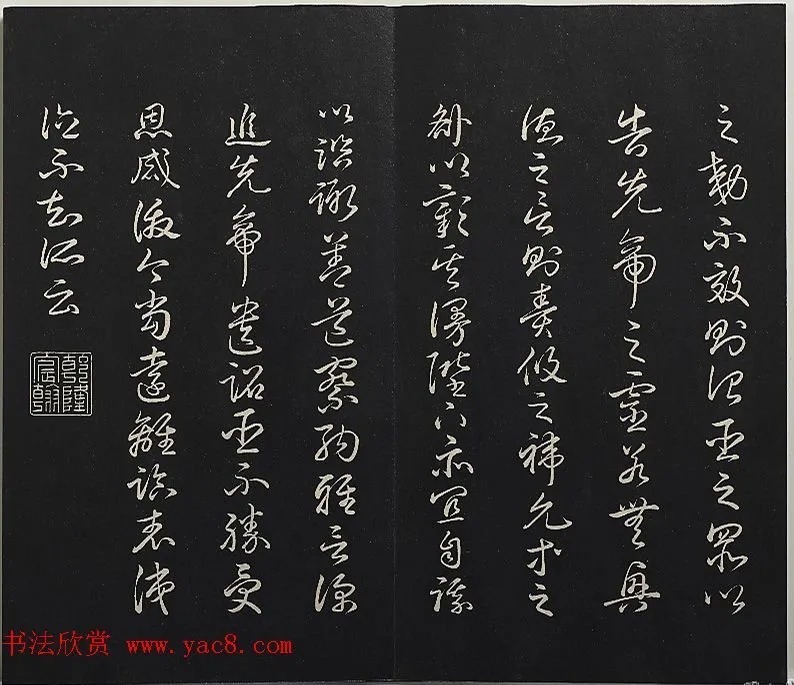 之不效則治臣之罪以
告先帝之靈若無興
德之言則責攸之禕允等之
咎以彰其慢陛下亦宜自謀
以諮諏善道察納雅言深
追先帝遺詔臣不勝受
恩感激今當遠離臨表涕
泣不知所云
乾隆宸翰
书法欣赏 www.yac8.com